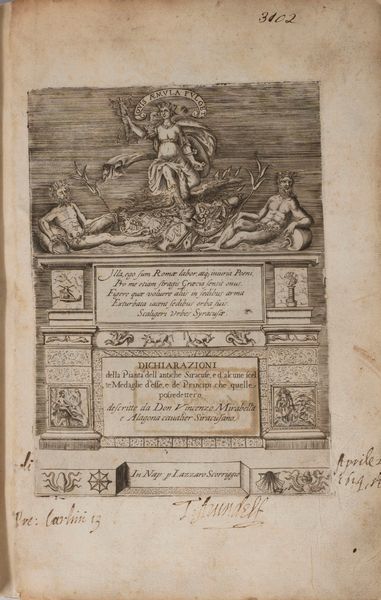 3102
ÆMVLA FVLGET
Illa ego sum Romæ labor, atq; iniuria Poeni,
Pro me etiam strages Græcia sensit onus.
Figere quæ voluere alijs in sedibus arma
Exturbata iacent sedibus orba suis.
Scaligeri Vrbes Syracusæ.
DICHIARAZIONI
della Pianta dell' antiche Siracuse, ed alcune scel
te Medaglie d'esse, e de Principi che quelle
possedettero
descritte da Don Vincenzo Mirabella
e Alagona caualier Siracusano.
In Nap. p Lazzaro Scorriggio
Aprile
Pre: Carlini 13
T: Arundell